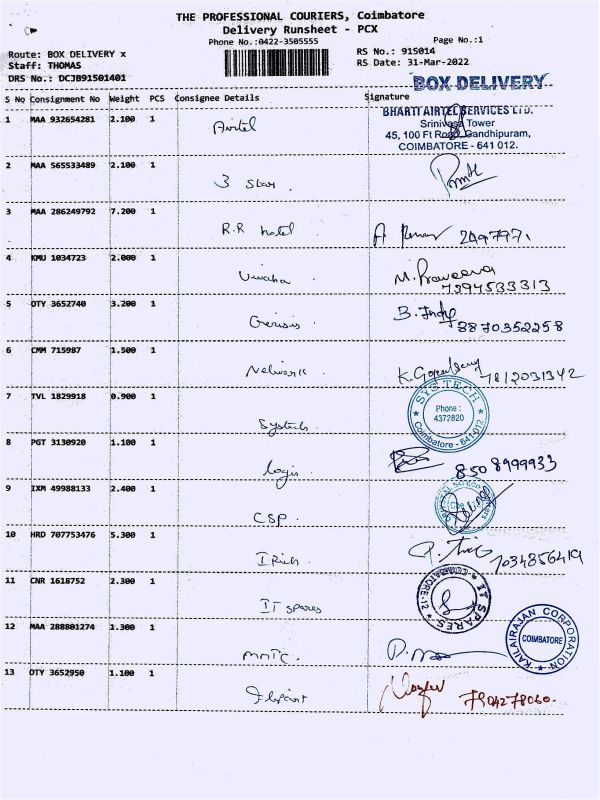 THE PROFESSIONAL COURIERS, Coimbatore
Delivery Runsheet - PCX
Phone No.:0422-3505555
Page No.:1
Route: BOX DELIVERY x
RS No.: 915014
Staff: THOMAS
RS Date: 31-Mar-2022
DRS No.: DCJB91501401
BOX DELIVERY
S No Consignment No Weight PCS Consignee Details Signature
1 MAA 932654281 2.100 1 Airtel
BHARTI AIRTEL SERVICES LTD.
Srinivasa Tower
45, 100 Ft Road, Gandhipuram,
COIMBATORE - 641 012.
2 MAA 565533489 2.100 1 3 Star.
3 MAA 286249792 7.200 1 R.R hotel
4 KMU 1034723 2.000 1 Vivaha M. Praveena
7394533313
5 OTY 3652740 3.200 1 B.
3870352258
6 CMM 715987 1.500 1 Network K. 7812031342
7 TVL 1829918 0.900 1 Systech
SYS TECH
Phone :
4372820
Coimbatore - 641 012
8 PGT 3130920 1.100 1 logis 8508999933
9 IXM 49988133 2.400 1 CSP.
10 HRD 707753476 5.300 1 I Rich 7034856419
11 CNR 1618752 2.300 1 IT spares
IT SPARES
COIMBATORE-12
12 MAA 288801274 1.300 1 MMTC.
KAILAIRAJAN CORPORATION
COIMBATORE
13 OTY 3652950 1.100 1